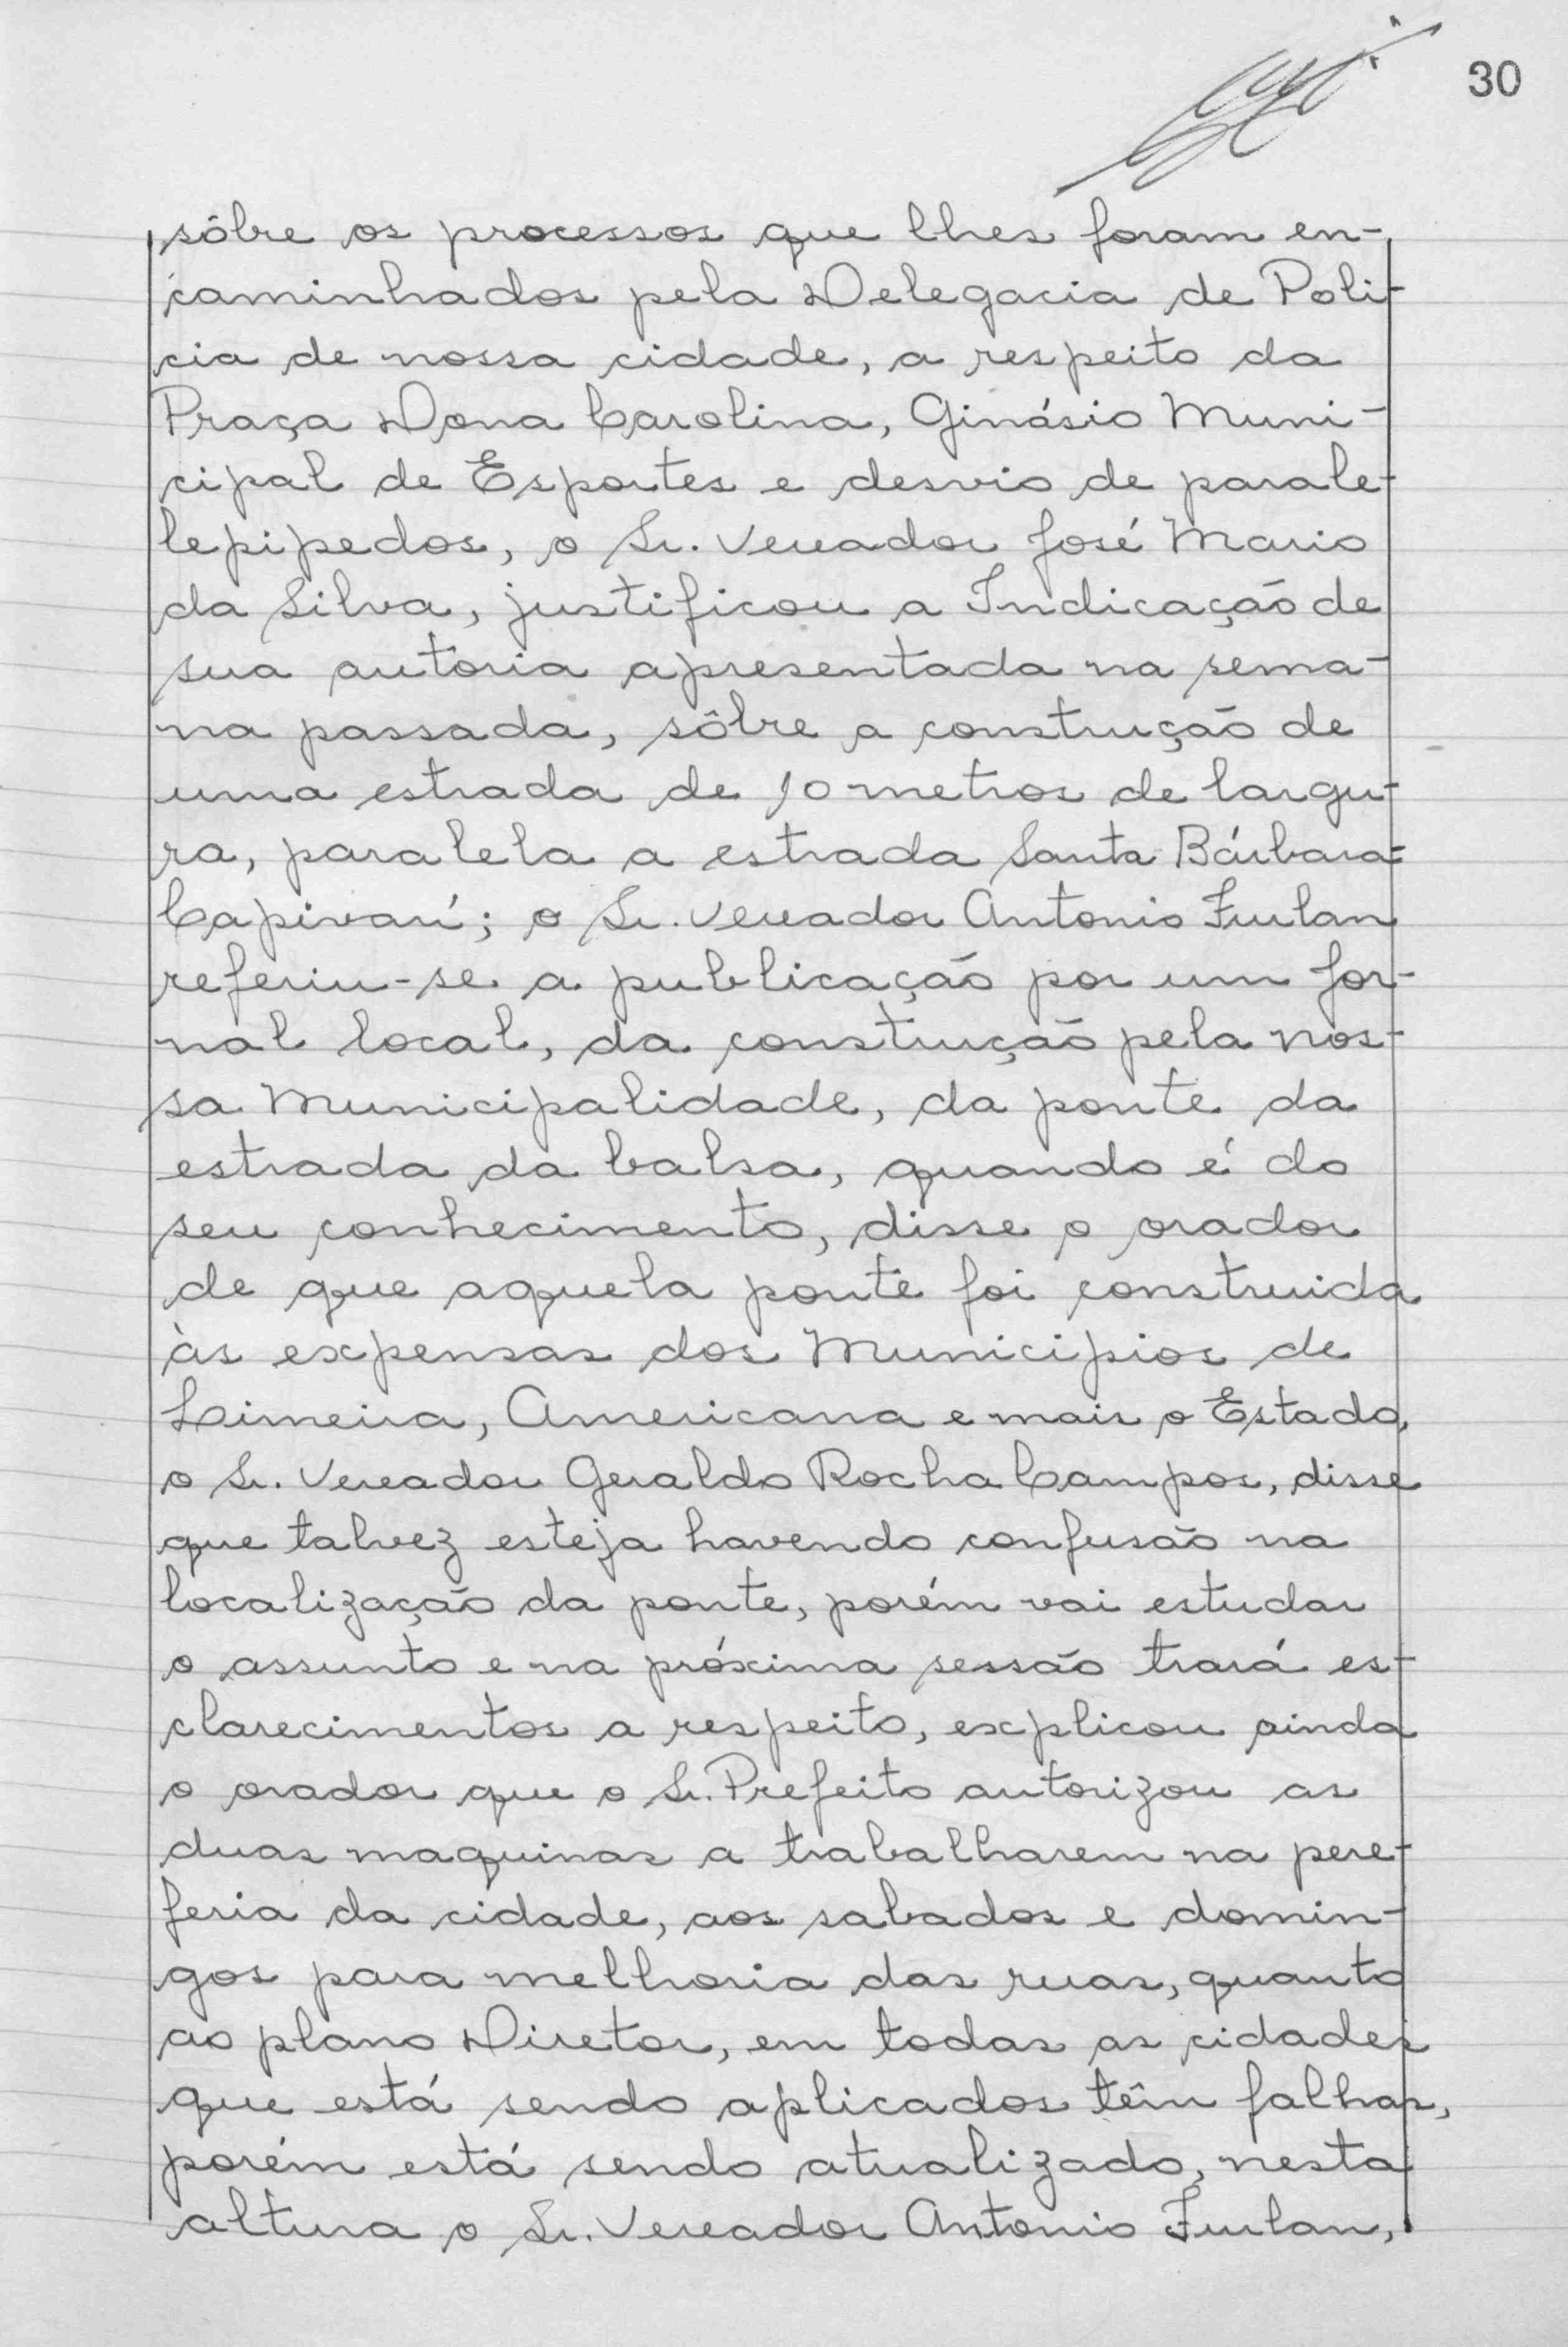 30
sôbre os processos que lhes foram en-
caminhados pela Delegacia de Poli-
cia de nossa cidade, a respeito da
Praça Dona Carolina, Ginásio Muni-
cipal de Esportes e desvio de parale-
lepipedos, o Sr. Vereador José Mario
da Silva, justificou a Indicação de
sua autoria apresentada na sema-
na passada, sôbre a construção de
uma estrada de 10 metros de largu-
ra, paralela a estrada Santa Bárbara=
Capivarí; o Sr. Vereador Antonio Furlan
referiu-se a publicação por um jor-
nal local, da construção pela nos-
sa Municipalidade, da ponte da
estrada da balsa, quando é do
seu conhecimento, disse o orador
de que aquela ponte foi construida
às expensas dos Municipios de
Limeira, Americana e mais o Estado,
o Sr. Vereador Geraldo Rocha Campos, disse
que talvez esteja havendo confusão na
localização da ponte, porém vai estudar
o assunto e na próxima sessão trará es-
clarecimentos a respeito, explicou ainda
o orador que o Sr. Prefeito autorizou as
duas maquinas a trabalharem na pere-
feria da cidade, aos sabados e domin-
gos para melhoria das ruas, quanto
ao plano Diretor, em todas as cidades
que está sendo aplicados têm falhas,
porém está sendo atualizado, nesta
altura o Sr. Vereador Antonio Furlan,